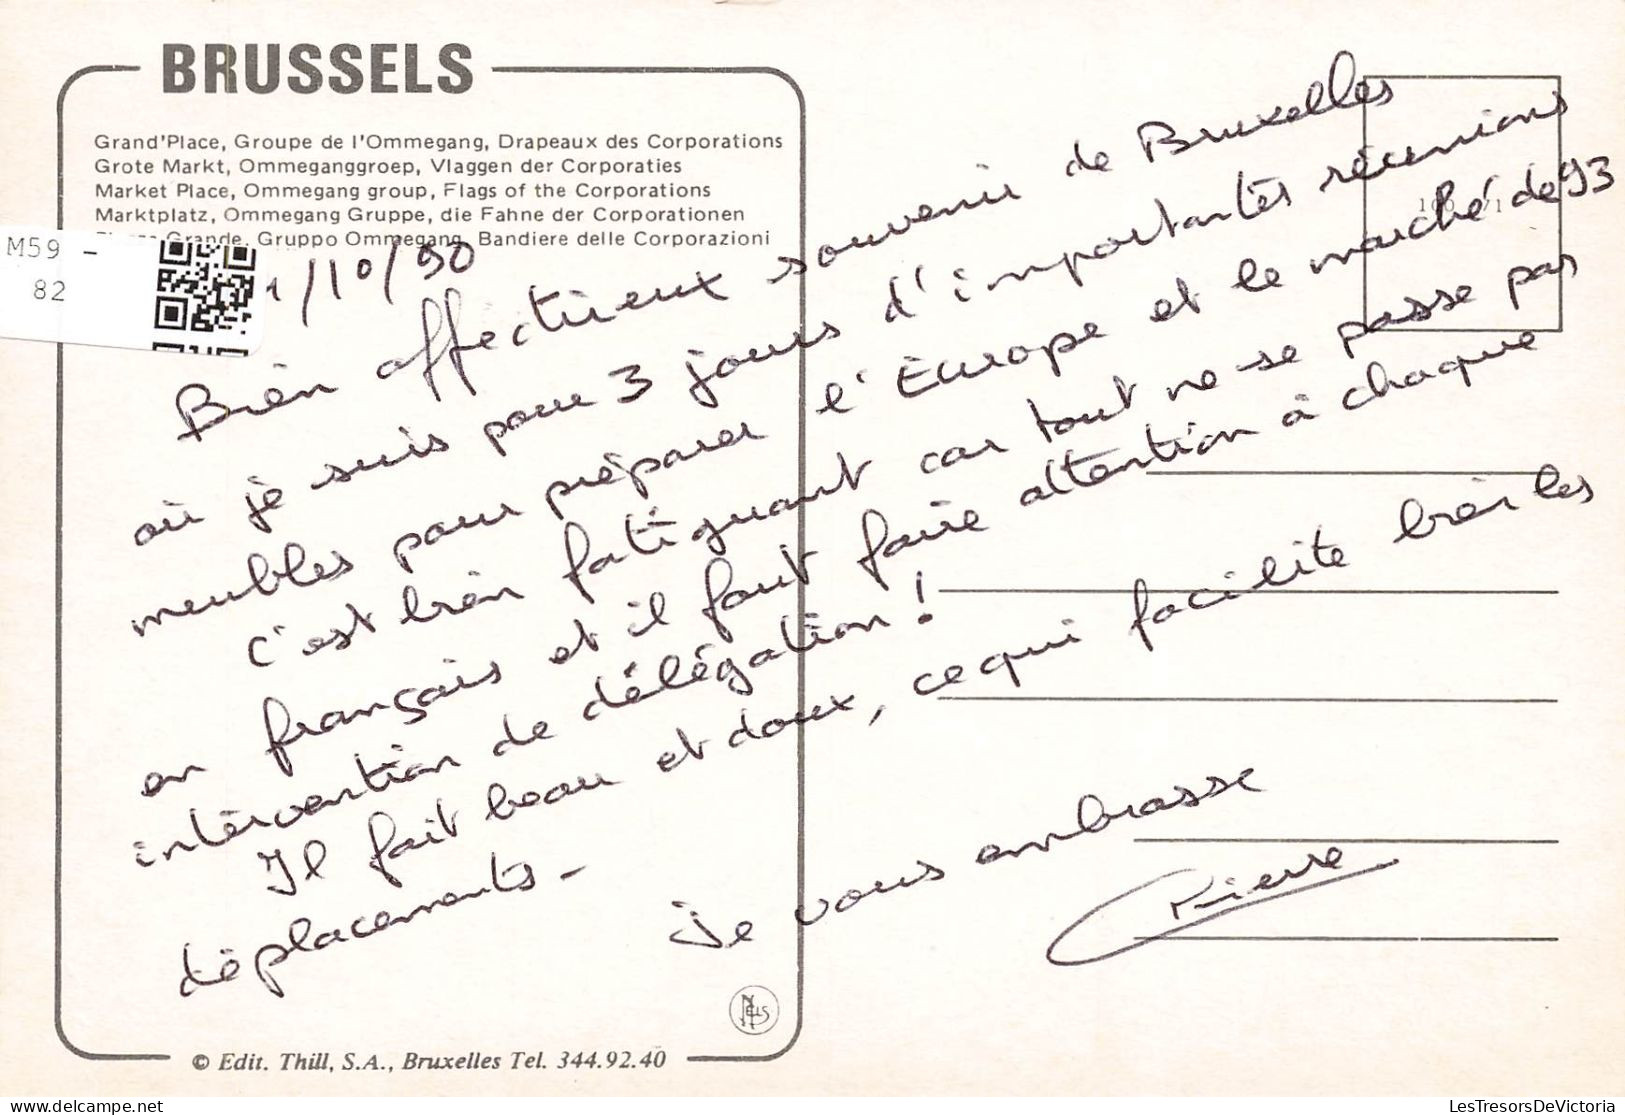 BRUSSELS
Grand'Place, Groupe de l'Ommegang, Drapeaux des Corporations
Grote Markt, Ommeganggroep, Vlaggen der Corporaties
Market Place, Ommegang group, Flags of the Corporations
Marktplatz, Ommegang Gruppe, die Fahne der Corporationen
Grande, Gruppo Ommegang, Bandiere delle Corporazioni
M59 -
82
1/10/90
Bien affectueux souvenir de Bruxelles
où je suis pour 3 jours d'importantes réunions
meubles pour préparer l'Europe et le marché de 93
c'est bien fatiguant car tout ne se passe pas
en français et il faut faire attention à chaque
intervention de délégation!
Il fait beau et doux, ce qui facilite bien les
déplacements -
Je vous embrasse
Pierre
NELS
© Edit. Thill, S.A., Bruxelles Tel. 344.92.40
LesTresorsDeVictoria